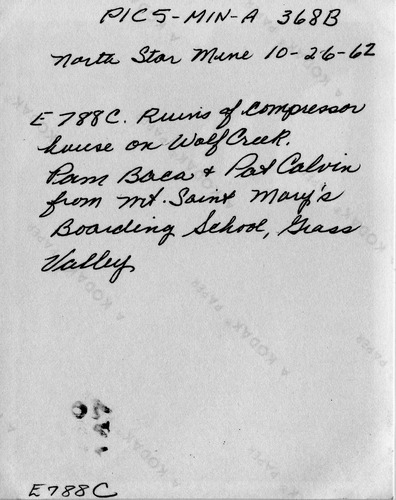 PIC5-MIN-A 368B
North Star Mine 10-26-62
E788C. Ruins of compressor
house on Wolf Creek.
Pam Baca & Pat Calvin
from Mt. Saint Mary's
Boarding School, Grass
Valley
A KODAK PAPER
E788C